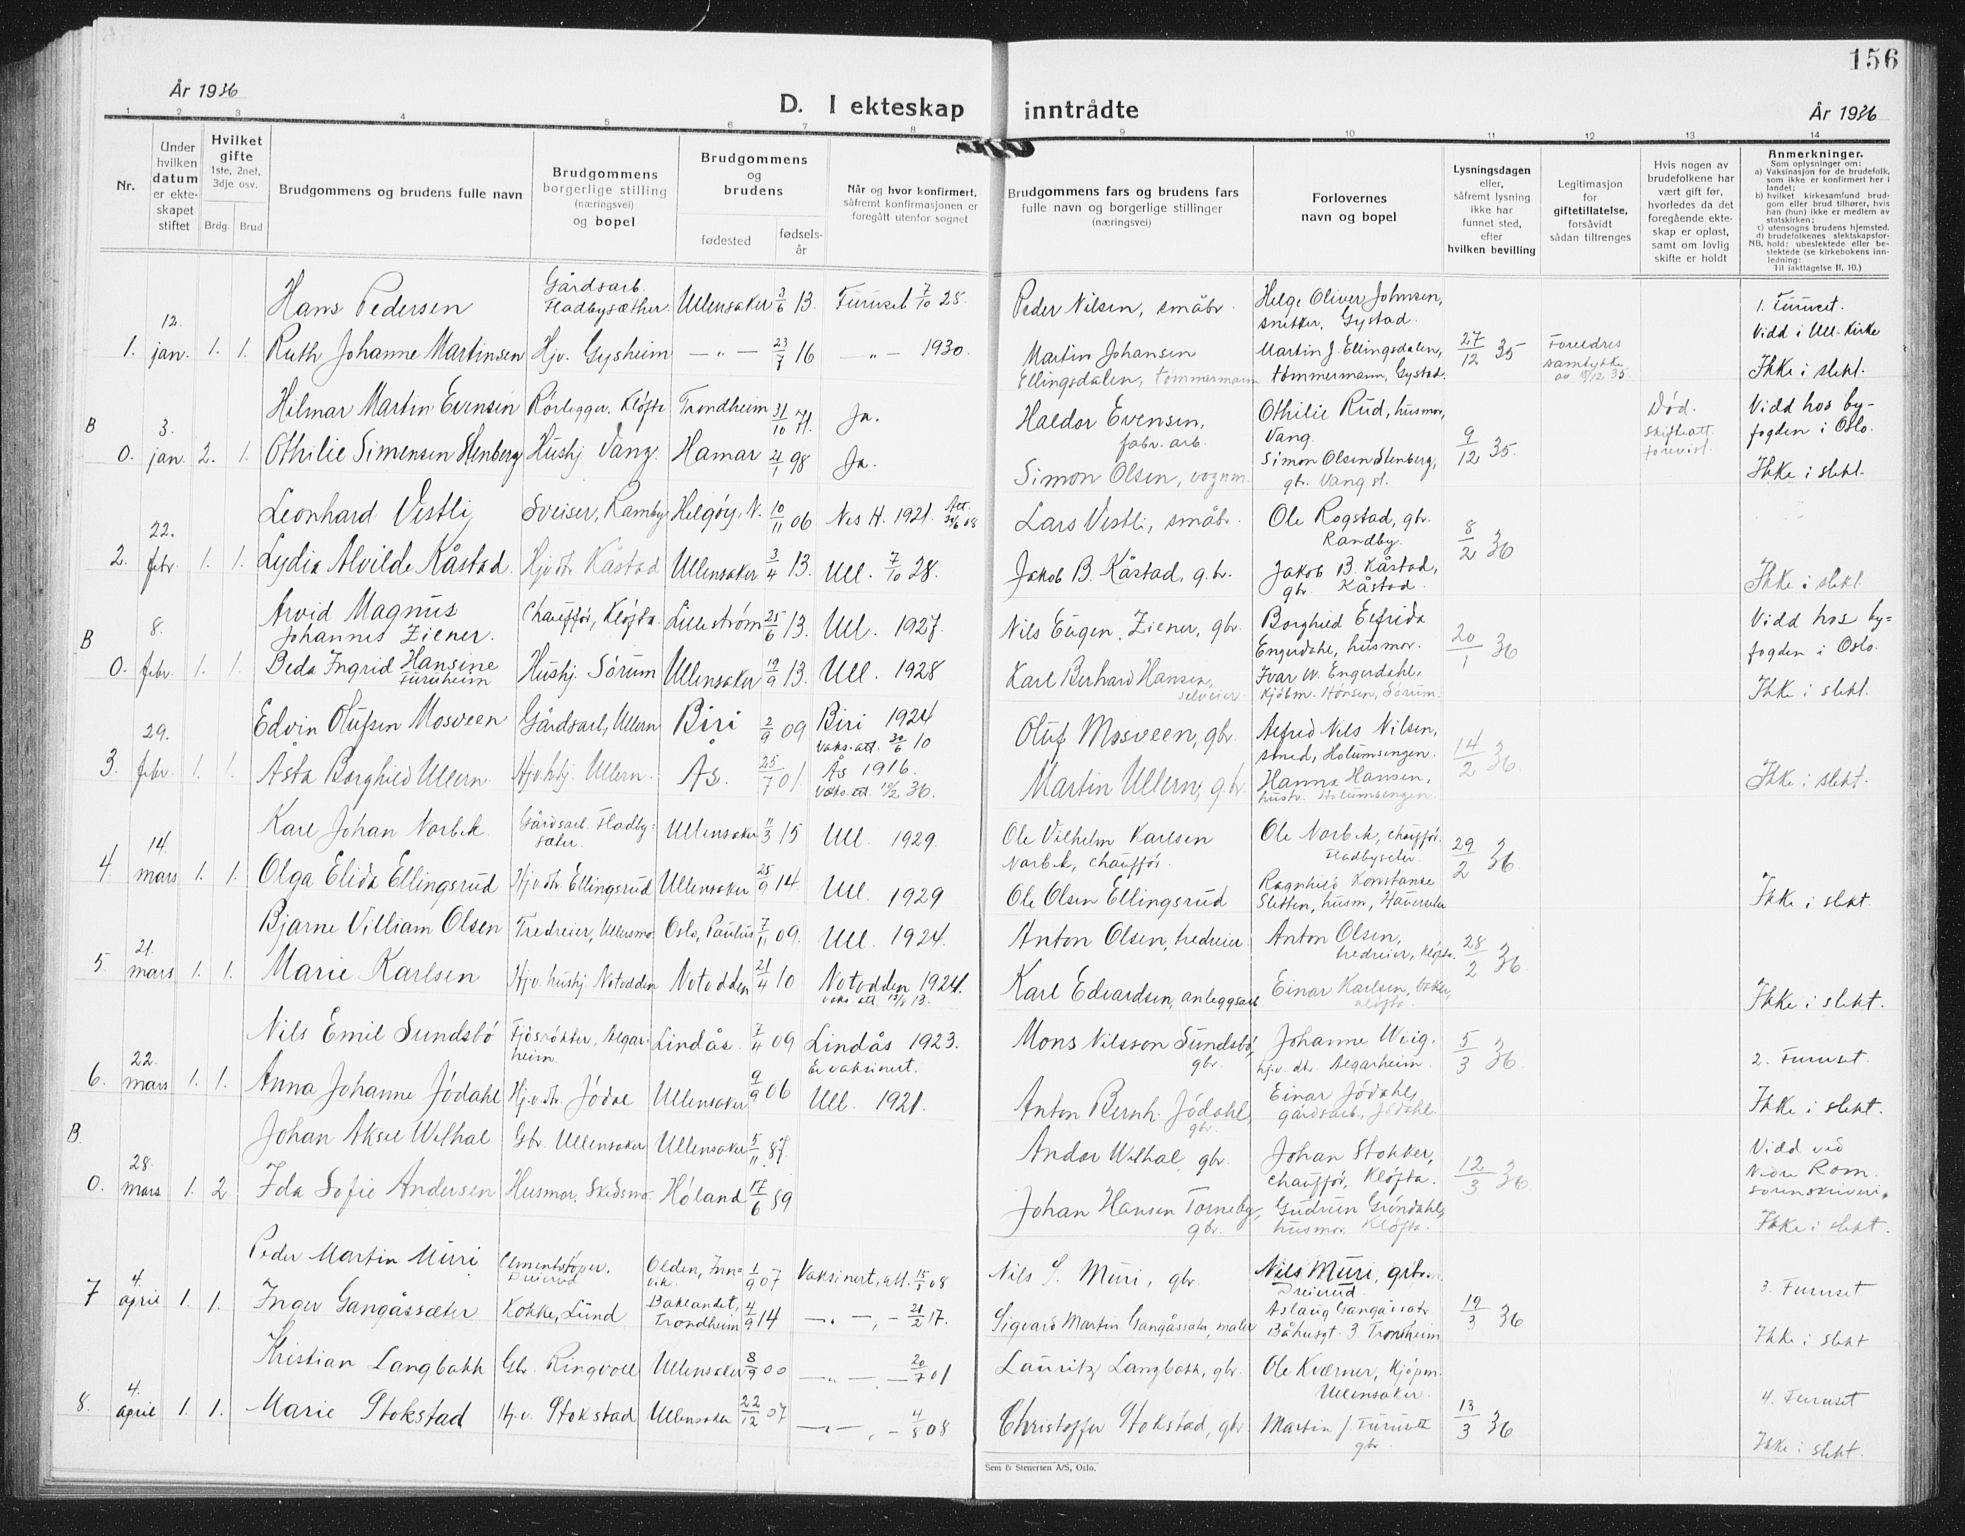 156
År 1936
D. I ekteskap inntrådte
År 1936
1 2 3 4 5 6 7 8 9 10 11 12 13 14
Nr.
Under hvilken datum er ekteskapet stiftet
Hvilket gifte 1ste, 2net, 3dje osv.
Brdg. Brud
Brudgommens og brudens fulle navn
Brudgommens borgerlige stilling (næringsvei) og bopel
Brudgommens og brudens
fødested
fødselsår
Når og hvor konfirmert, såfremt konfirmasjonen er foregått utenfor sognet
Brudgommens fars og brudens fars fulle navn og borgerlige stillinger (næringsvei)
Forlovernes navn og bopel
Lysningsdagen eller, såfremt lysning ikke har funnet sted, efter hvilken bevilling
Legitimasjon for giftetillatelse, forsåvidt sådan tiltrenges
Hvis nogen av brudefolkene har vært gift før, hvorledes da det foregående ekteskap er opløst, samt om lovlig skifte er holdt
Anmerkninger.
Som oplysninger om:
a) Vaksinasjon for de brudefolk, som ikke er konfirmert her i landet;
b) hvilket kirkesamfund brudgom eller brud tilhører, hvis han (hun) ikke er medlem av statskirken;
c) utensogns brudens hjemsted.
d) brudefolkenes slektskapsforhold: ubeslektede eller beslektede (se kirkebokens innledning:
NB. Til iakttagelse II. 10.)
Hans Pedersen Gårdsarb. Fladbysæther. Ullensaker 3/6 13. Furuset 7/10 28. Peder Nilsen, småbr. Helge Oliver Johnsen, snekker, Gystad. 1. Furuset.
1. 12. jan. 1. 1. Ruth Johanne Martinsen Hjv. Gysheim — " — 23/7 16 — " — 1930. Martin Johansen Ellingsdalen, tømmermann Martin J. Ellingsdalen, tømmermann, Gystad. 27/12 35 Foreldres samtykke av 15/12 35. Vidd i Ull. kirke Ikke i slekt.
B Hilmar Martin Evensen Rørlegger. Kløfta Trondheim 31/10 71. Ja. Haldor Evensen, fabr. arb. Othilie Rud, husmor, Vang. Død. Skifteatt. forevist. Vidd hos byfogden i Oslo.
0. 3. jan. 2. 1. Othilie Simensen Stenberg Hushj Vang. Hamar 21/1 98 Ja. Simon Olsen, vognm. Simon Olsen Stenberg, gbr. Vang st. 9/12 35. Ikke i slekt.
Leonhard Vestli Sveiser, Ramby Helgøy, N. 10/11 06 Nes H. 1921. Att. Lars Vestli, småbr. Ole Rogstad, gbr. Randby.
2. 22. febr. 1. 1. Lydia Alvilde Kåstad. Hjv dtr Kåstad Ullensaker 3/4 13. Ull. 7/10 28. Jakob B. Kåstad, g.br. Jakob B. Kåstad, gbr. Kåstad. 8/2 36 Ikke i slekt.
B Arvid Magnus Johannes Ziener. Chauffør, Kløfta. Lillestrøm 25/6 13. Ull. 1927. Nils Eugen Ziener, gbr. Borghild Elfrida Engerdahl, husmor. Vidd hos byfogden i Oslo.
0. 8. febr. 1. 1. Beda Ingrid Hansine Furuheim Hushj. Sørum Ullensaker 19/9 13. Ull. 1928 Karl Berhard Hansen, selveier Ivar W. Engerdahl, Kjøbm. Hønsen, Sørum. 20/1 36 Ikke i slekt.
Edvin Olufsen Mosveen Gårdsarb, Ullern Biri 2/9 09 Biri 1924 Vaks. att. 30/6 10 Oluf Mosveen, gbr. Alfred Nils Nilsen, smed, Holumsengen.
3. 29. febr. 1. 1. Åsta Borghild Ullern. Hjv.hj. Ullern. Ås. 25/7 01. Ås 1916. Vaks. att. 12/2 36. Martin Ullern, gbr. Hanna Hansen, hustr. Holumsengen. 14/2 36. Ikke i slekt.
Karl Johan Norbek Gårdsarb. Fladbysæter. Ullensaker 11/3 15 Ull. 1929. Ole Vilhelm Karlsen Norbek, chauffør. Ole Norbek, chauffør. Fladbyseter
4. 14. mars 1. 1. Olga Elida Ellingsrud Hjv dtr. Ellingsrud Ullensaker 25/9 14. Ull. 1929 Ole Olsen Ellingsrud Ragnhild Konstanse Sletten, husm, 29/2 36. Ikke i slekt.
Bjarne Villiam Olsen Tredreier, Ullensmo. Oslo, Paulus 7/11 09. Ull. 1924. Anton Olsen, tredreier Anton Olsen, tredreier, Kløfta.
5. 21. mars 1. 1. Marie Karlsen Hjv. hushj Notodden Notodden 21/4 10 Notodden 1924. Vaks att. Karl Edvardsen, anleggsarb Einar Karlsen, baker, Kløfta. 28/2 36. Ikke i slekt.
Nils Emil Sundsbø Fjøsrøkter, Algarheim. Lindås. 7/4 09 Lindås 1923. Er vaksinert. Mons Nilsson Sundsbø, gbr. Johanne Wiig. hjv. dtr. Algarheim. 5/3 36. 2. Furuset.
6. 22. mars 1. 1. Anna Johanne Jødahl Hj.v.dtr. Jødal Ullensaker 9/9 06 Ull. 1921. Anton Bernh. Jødahl, gbr. Einar Jødahl, gårdsarb, Jødahl. Ikke i slekt.
B. Johan Aksel Wilhal Gbr. Ullensaker Ullensaker 5/11 87. Andor Wilhal, gbr. Johan Stokker, chauffør, Kløfta. Vidd ved Nedre Rom. sorenskriveri.
0. 28. mars 1. 2. Ida Sofie Andersen Husmor, Skedsmo. Høland 17/6 89 Johan Hansen Torneby, gbr. Gudrun Grøndahl, husmor. Kløfta. 12/3 36 Ikke i slekt.
Peder Martin Muri Cementstøper, Dreierud Olden, Innvik. 1/9 07 Vaksinert, att. 15/5 08 Nils S. Muri, gbr. Nils Muri, grbr. Dreierud 3. Furuset
7 4. april 1. 1. Inger Gangåssæter Kokke, Lund Baklandet, Trondheim 4/9 14 — " —, — 21/2 17. Sigvard Martin Gangåssæter, maler Aslaug Gangåssætr Båhusgt. 3 Trondheim 19/3 36 Ikke i slekt
Kristian Langbakk Gbr. Ringvoll Ullensaker 8/9 00 — " — — 20/7 01 Lauritz Langbakk, gbr. Ole Kværner, Kjøpm. Ullensaker. 4. Furuset
8. 4. april 1. 1. Marie Stokstad Hj.v. Stokstad Ullensaker 22/12 07 — " —, — 4/8 08 Christoffer Stokstad, gbr Martin J. Furuseth gbr. 13/3 36 Ikke i slekt.
Sem & Stenersen A/S, Oslo.